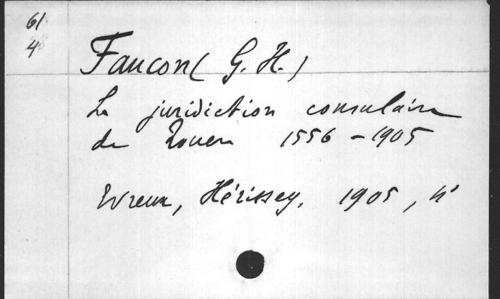 61
4
Faucon ( G. H. )
La juridiction consulaire
de Rouen 1556 - 1905
Evreux, Hérissey, 1905, 4°